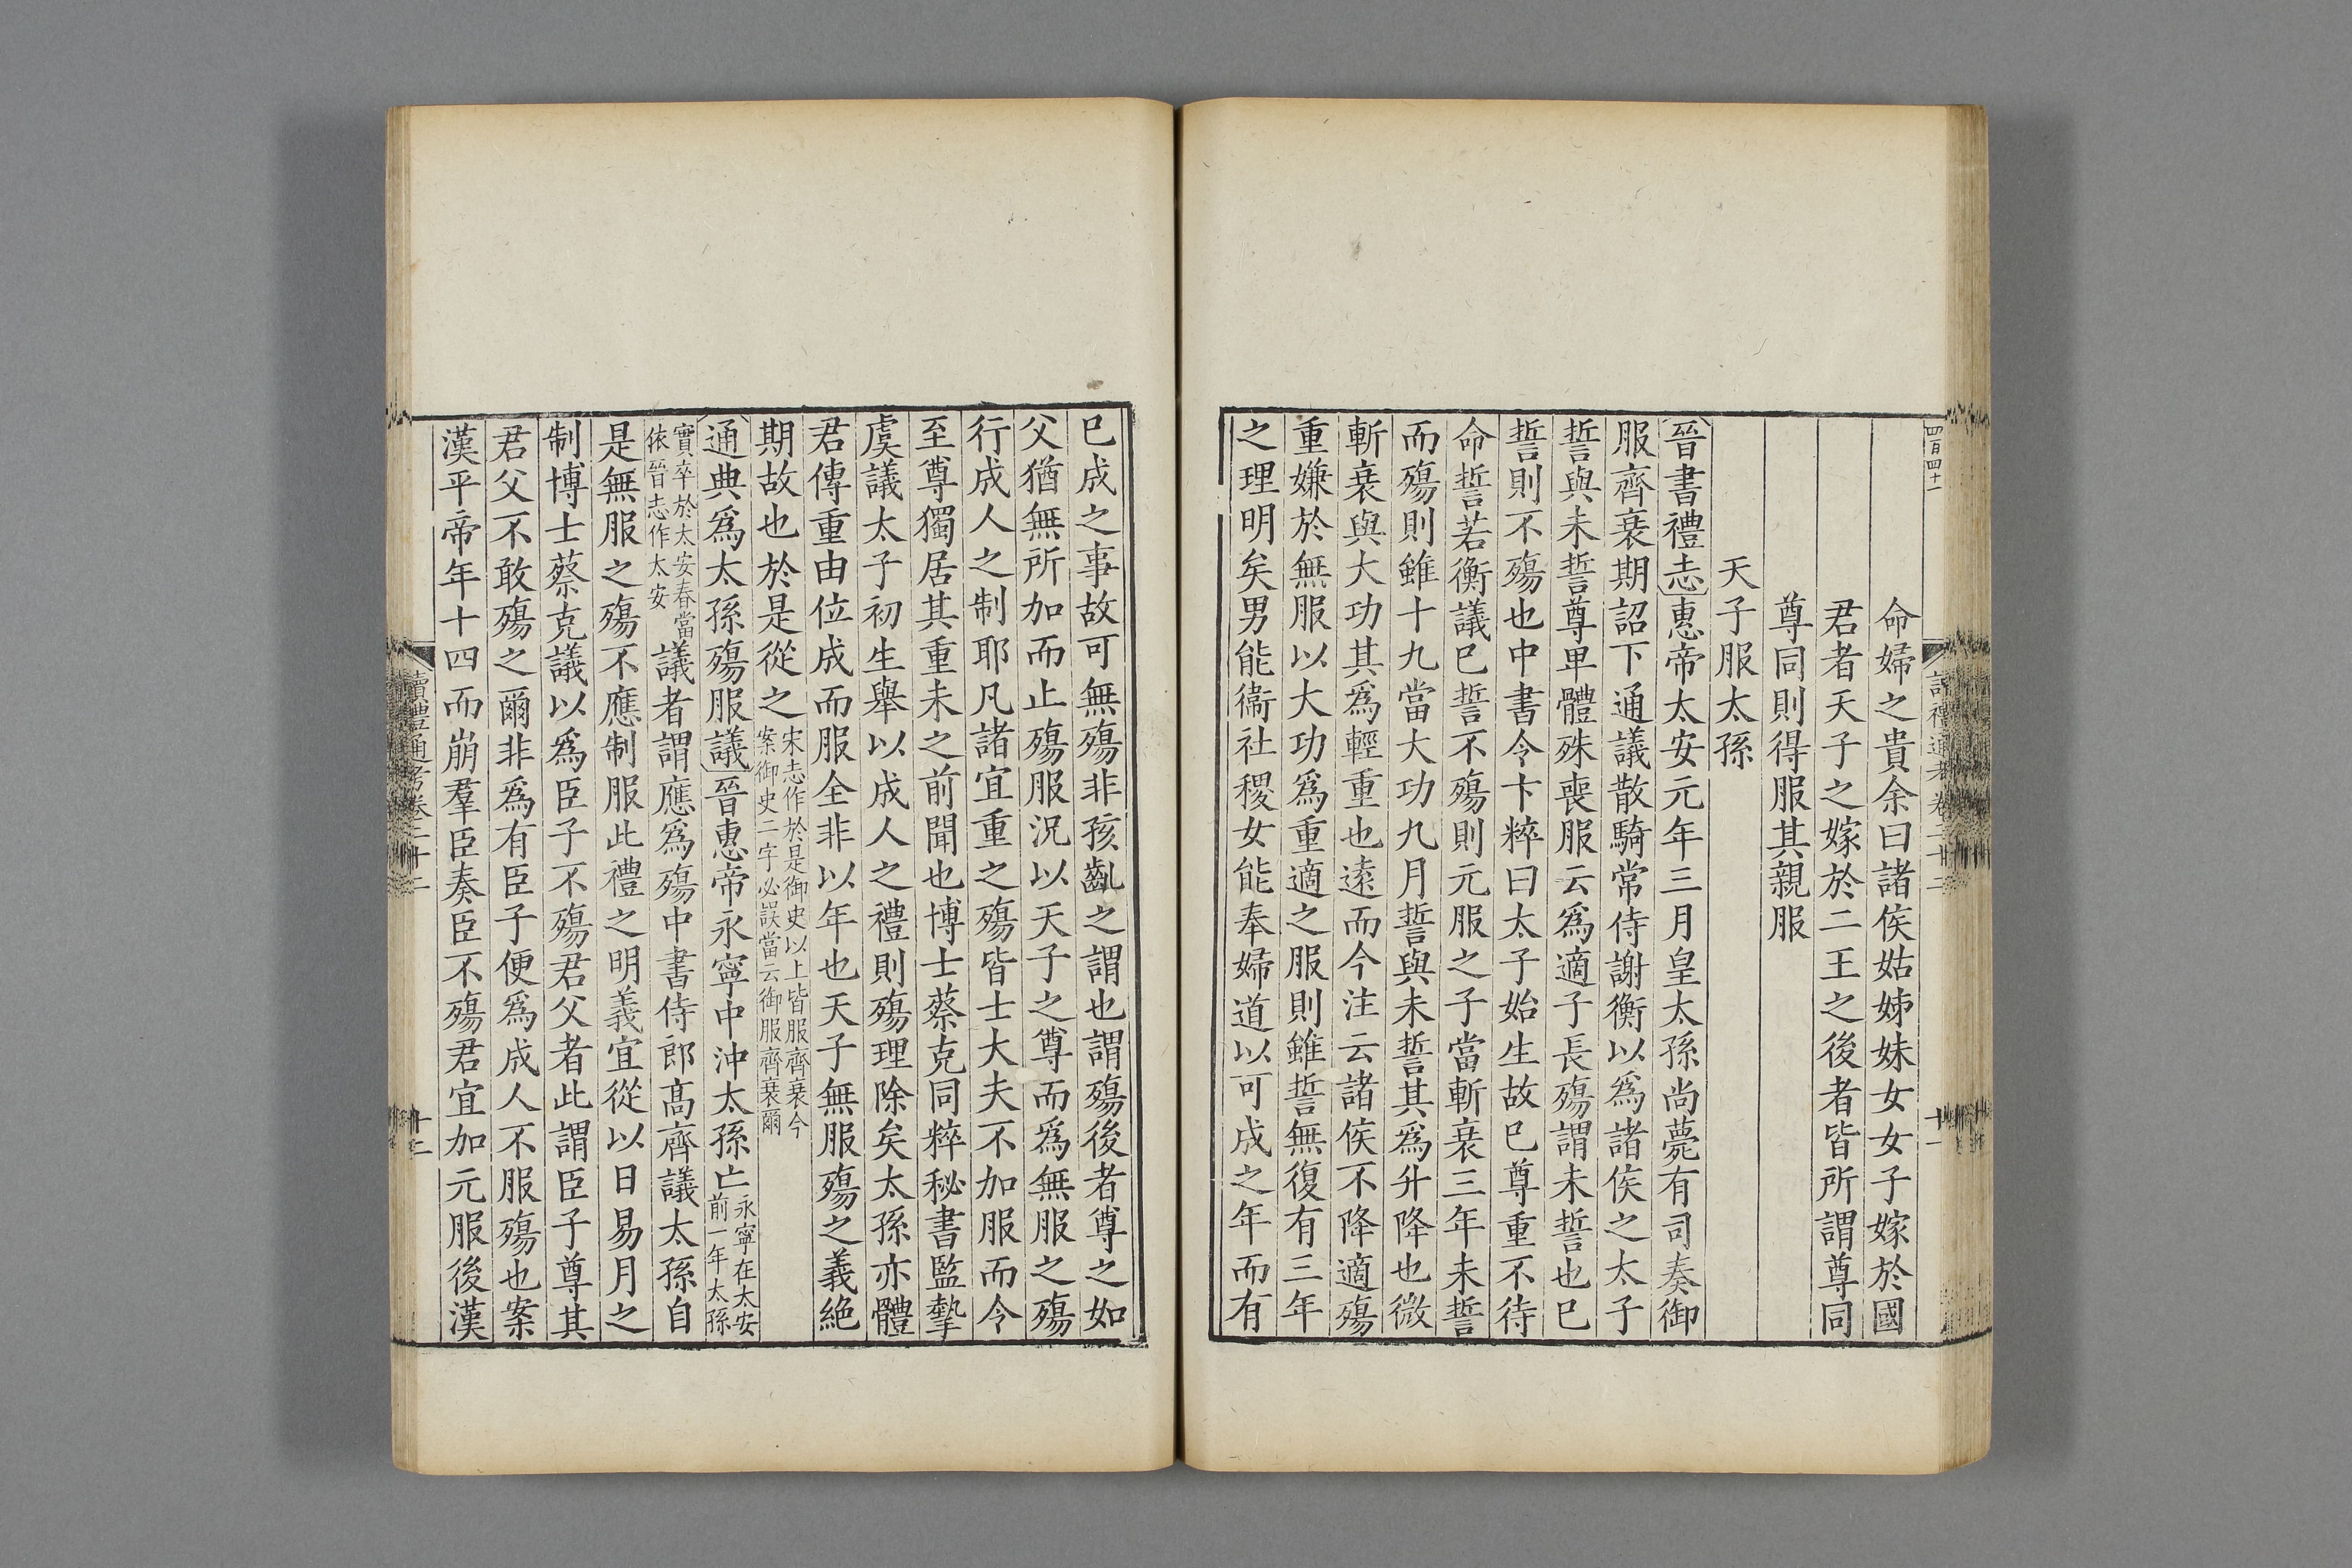 四百四十一
讀禮通考卷二十二
十一
命婦之貴余曰諸侯姑姊妹女女子嫁於國
君者天子之嫁於二王之後者皆所謂尊同
尊同則得服其親服
天子服太孫
晉書禮志惠帝太安元年三月皇太孫尚薨有司奏御
服齊衰期詔下通議散騎常侍謝衡以爲諸侯之太子
誓與未誓尊卑體殊喪服云爲適子長殤謂未誓也已
誓則不殤也中書令卞粹曰太子始生故已尊重不待
命誓若衡議已誓不殤則元服之子當斬衰三年未誓
而殤則雖十九當大功九月誓與未誓其爲升降也微
斬衰與大功其爲輕重也遠而今注云諸侯不降適殤
重嫌於無服以大功爲重適之服則雖誓無復有三年
之理明矣男能衞社稷女能奉婦道以可成之年而有
已成之事故可無殤非孩齔之謂也謂殤後者尊之如
父猶無所加而止殤服況以天子之尊而爲無服之殤
行成人之制耶凡諸宜重之殤皆士大夫不加服而令
至尊獨居其重未之前聞也博士蔡克同粹秘書監摯
虞議太子初生舉以成人之禮則殤理除矣太孫亦體
君傳重由位成而服全非以年也天子無服殤之義絶
期故也於是從之宋志作於是御史以上皆服齊衰今
案御史二字必誤當云御服齊衰爾
通典爲太孫殤服議晉惠帝永寧中沖太孫亡永寧在太安
前一年太孫
實卒於太安春當
依晉志作太安議者謂應爲殤中書侍郎高齊議太孫自
是無服之殤不應制服此禮之明義宜從以日易月之
制博士蔡克議以爲臣子不殤君父者此謂臣子尊其
君父不敢殤之爾非爲有臣子便爲成人不服殤也案
漢平帝年十四而崩羣臣奏臣不殤君宜加元服後漢
讀禮通考卷二十二
十二